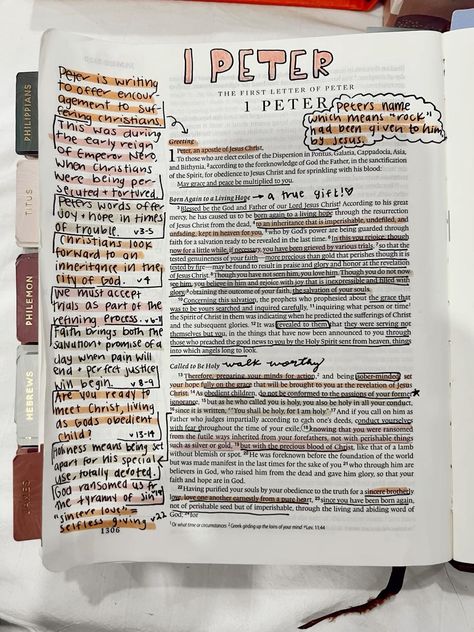 PHILIPPIANS
TITUS
PHILEMON
HEBREWS
JAMES
1 PETER
THE FIRST LETTER OF PETER
1 PETER
Peter's name
which means "rock"
had been given to him
by Jesus.
Peter is writing
to offer encour-
agement to suf-
fering christians.
This was during
the early reign
of Emperor Nero,
when Christians
were being per-
secuted + tortured
Peter's words offer
joy + hope in times
of trouble. v3-5
Christians look
forward to an
inheritance in the
city of God. v4
we must accept
trials as part of the
refining process
Faith brings both the
salvation + promise of a
day when pain will
end + perfect justice
will begin. v8-9
Are you ready to
meet Christ, living
as God's obedient
child? v13-14
Holiness means being set
apart for his special
use, totally devoted.
God ransomed us from
the tyranny of sin
"sincere love" =
selfless giving v22
1306
Greeting
1 Peter, an apostle of Jesus Christ,
To those who are elect exiles of the Dispersion in Pontus, Galatia, Cappadocia, Asia,
and Bithynia, 2 according to the foreknowledge of God the Father, in the sanctification
of the Spirit, for obedience to Jesus Christ and for sprinkling with his blood:
May grace and peace be multiplied to you.
Born Again to a Living Hope → a true gift!♡
3 Blessed be the God and Father of our Lord Jesus Christ! According to his great
mercy, he has caused us to be born again to a living hope through the resurrection
of Jesus Christ from the dead, 4 to an inheritance that is imperishable, undefiled, and
unfading, kept in heaven for you, 5 who by God's power are being guarded through
faith for a salvation ready to be revealed in the last time. 6 In this you rejoice, though
now for a little while, if necessary, you have been grieved by various trials, 7 so that the
tested genuineness of your faith—more precious than gold that perishes though it is
tested by fire—may be found to result in praise and glory and honor at the revelation
of Jesus Christ. 8 Though you have not seen him, you love him. Though you do not now
see him, you believe in him and rejoice with joy that is inexpressible and filled with
glory, 9 obtaining the outcome of your faith, the salvation of your souls.
10 Concerning this salvation, the prophets who prophesied about the grace that
was to be yours searched and inquired carefully, 11 inquiring what person or time
the Spirit of Christ in them was indicating when he predicted the sufferings of Christ
and the subsequent glories. 12 It was revealed to them that they were serving not
themselves but you, in the things that have now been announced to you through
those who preached the good news to you by the Holy Spirit sent from heaven, things
into which angels long to look.
Called to Be Holy walk worthy
13 Therefore, preparing your minds for action, and being sober-minded, set
your hope fully on the grace that will be brought to you at the revelation of Jesus
Christ. 14 As obedient children, do not be conformed to the passions of your former
ignorance, 15 but as he who called you is holy, you also be holy in all your conduct,
16 since it is written, "You shall be holy, for I am holy." 17 And if you call on him as
Father who judges impartially according to each one's deeds, conduct yourselves
with fear throughout the time of your exile, 18 knowing that you were ransomed
from the futile ways inherited from your forefathers, not with perishable things
such as silver or gold, 19 but with the precious blood of Christ, like that of a lamb
without blemish or spot. 20 He was foreknown before the foundation of the world
but was made manifest in the last times for the sake of you 21 who through him are
believers in God, who raised him from the dead and gave him glory, so that your
faith and hope are in God.
22 Having purified your souls by your obedience to the truth for a sincere brotherly
love, love one another earnestly from a pure heart, 23 since you have been born again,
not of perishable seed but of imperishable, through the living and abiding word of
God; 24 for